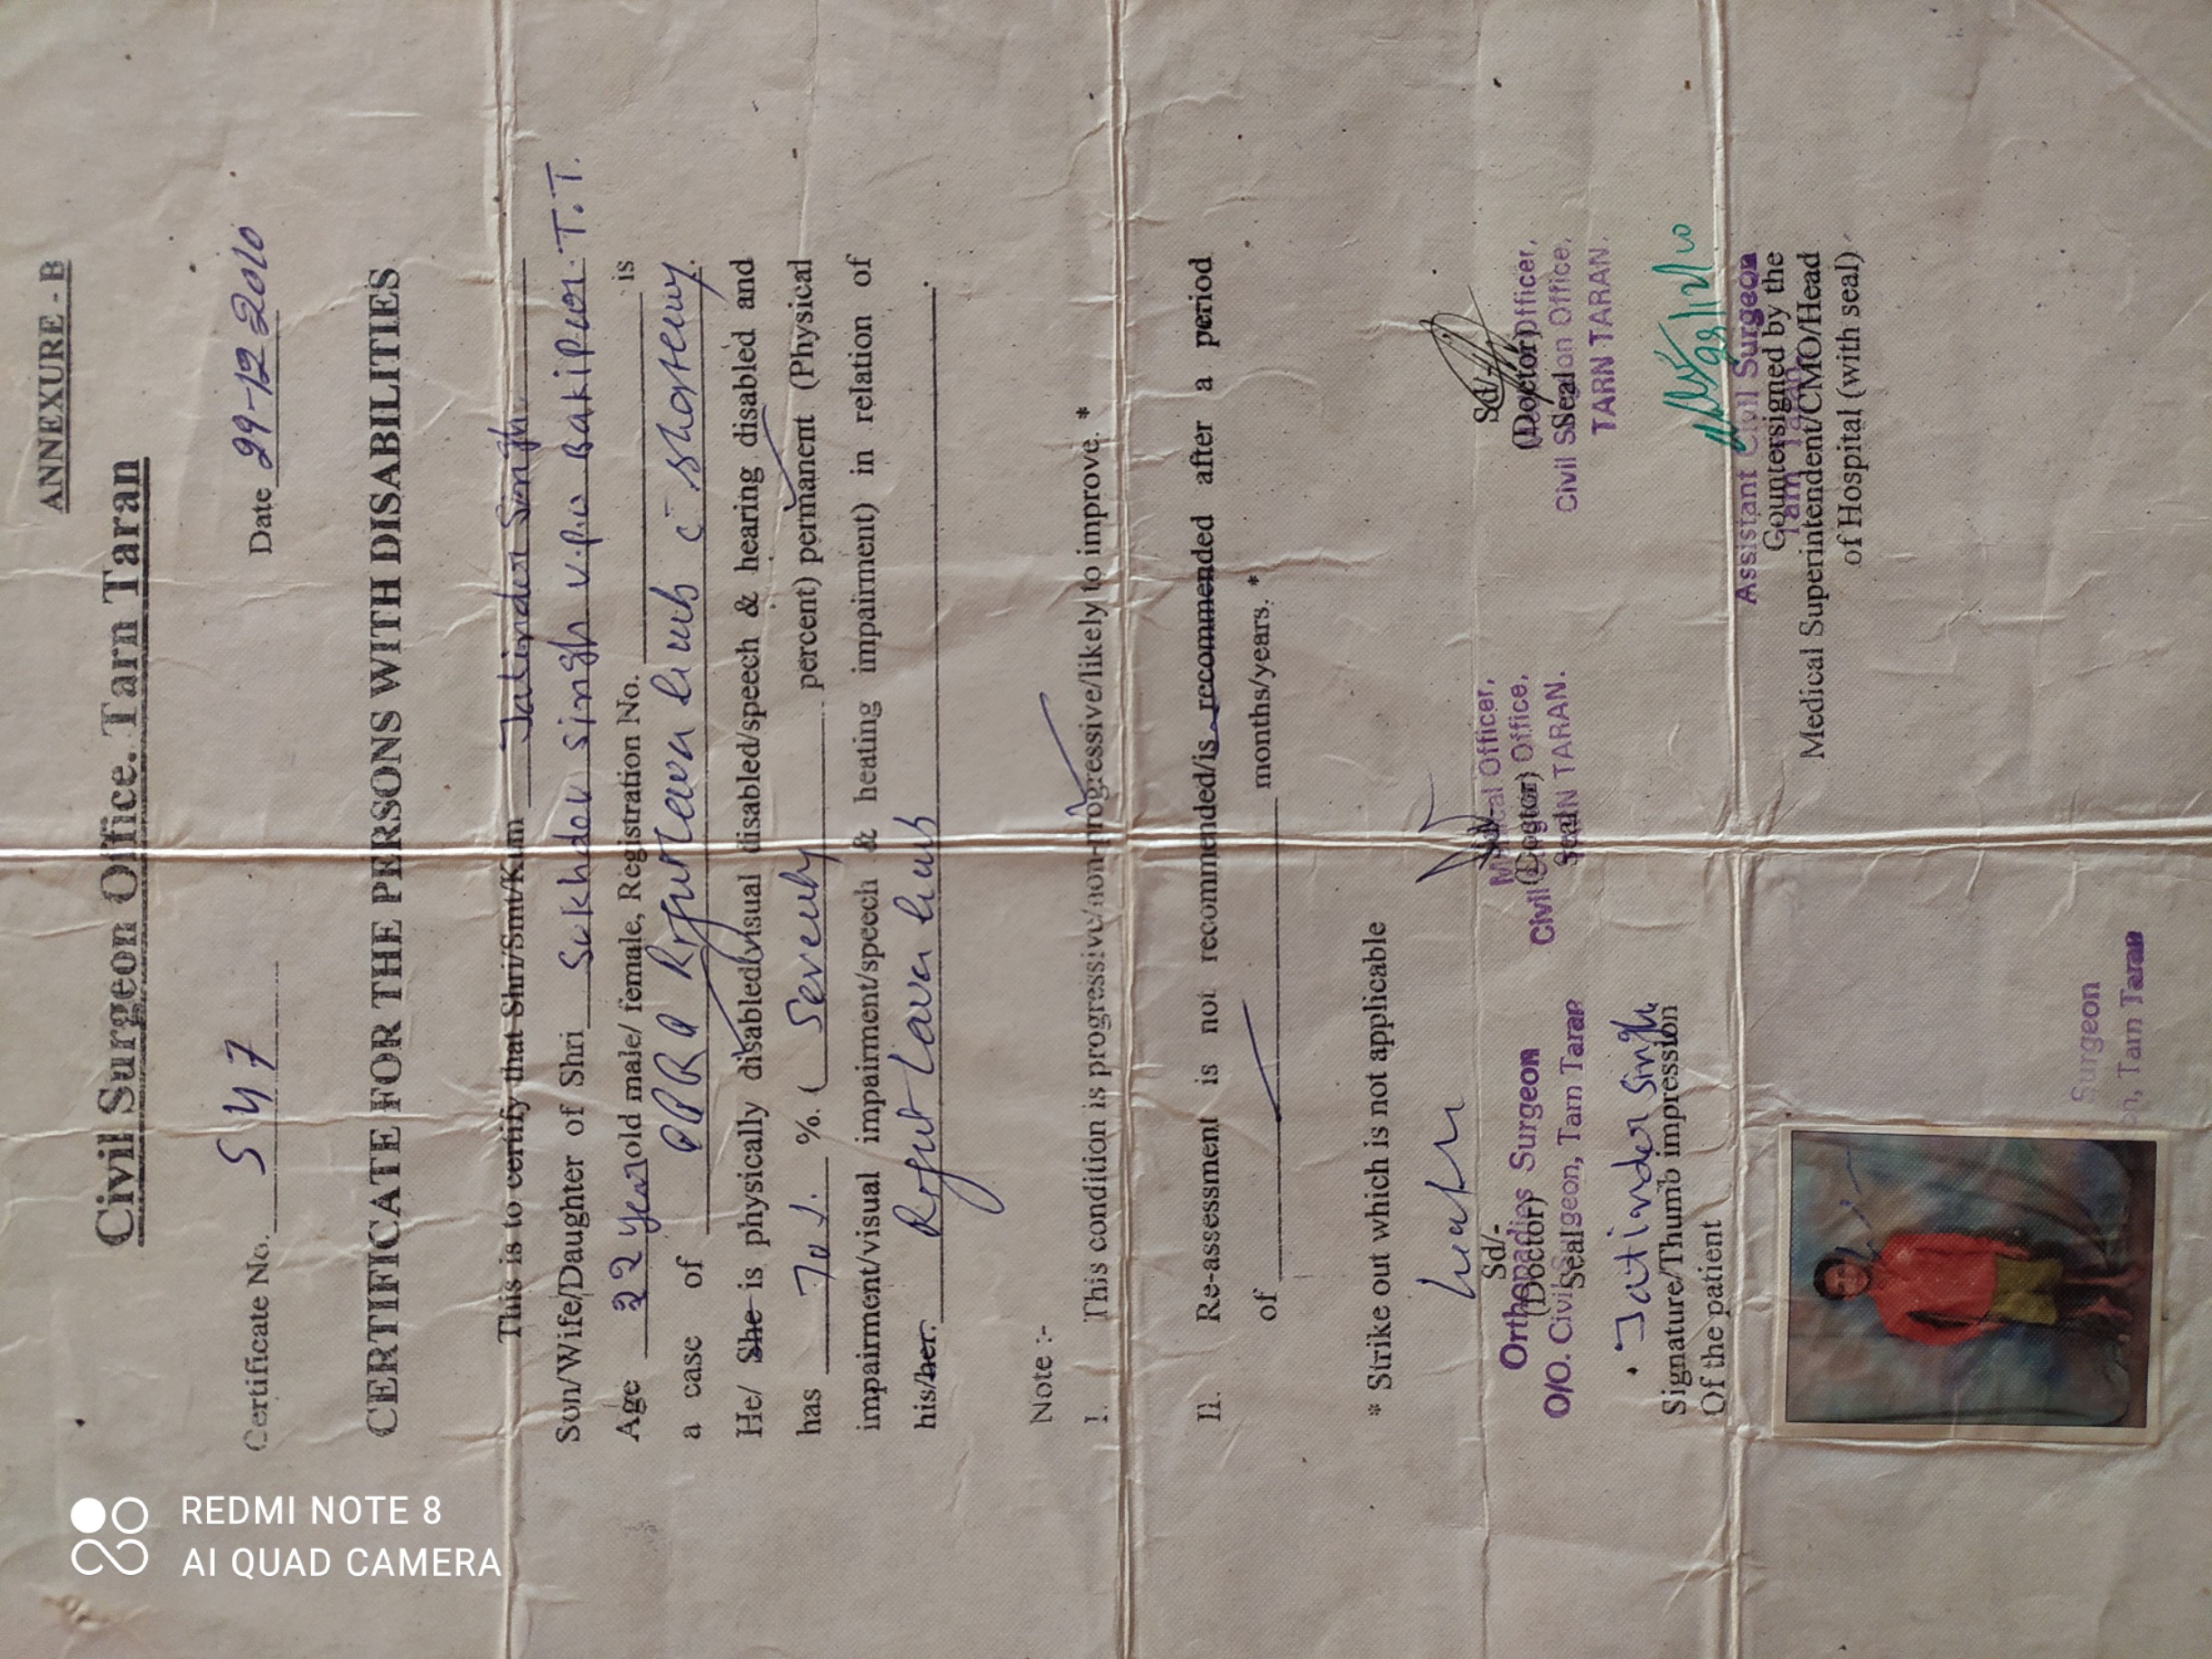 ANNEXURE - B
Civil Surgeon Office. Tarn Taran
Certificate No. 547 Date 29-12-2010
CERTIFICATE FOR THE PERSONS WITH DISABILITIES
This is to certify that Shri/Smt/Kum Jatinder Singh
Son/Wife/Daughter of Shri Sukhdev Singh V.P.O Bakipur T.T.
Age 22 year old male/ female, Registration No. is
a case of PPRP Right Lower limb c̄ shortening.
He/ She is physically disabled/visual disabled/speech & hearing disabled and
has 70%. %. (Seventy percent) permanent (Physical
impairment/visual impairment/speech & heating impairment) in relation of
his/her. Right Lower limb.
Note :-
I. This condition is progressive/non-progressive/likely to improve. *
II. Re-assessment is not recommended/is recommended after a period
of months/years. *
* Strike out which is not applicable
Sd/- Sd/-
(Doctor) (Doctor) (Doctor)
Seal Seal Seal
Orthopadies Surgeon
O/O. Civil Surgeon, Tarn Taran
Medical Officer,
Civil Office,
TARN TARAN.
Officer,
Civil Surgeon Office,
TARN TARAN.
Jatinder Singh
Signature/Thumb impression
Of the patient
Assistant Civil Surgeon
Tarn Taran
Countersigned by the
Medical Superintendent/CMO/Head
of Hospital (with seal)
Surgeon
Tarn Taran
REDMI NOTE 8
AI QUAD CAMERA